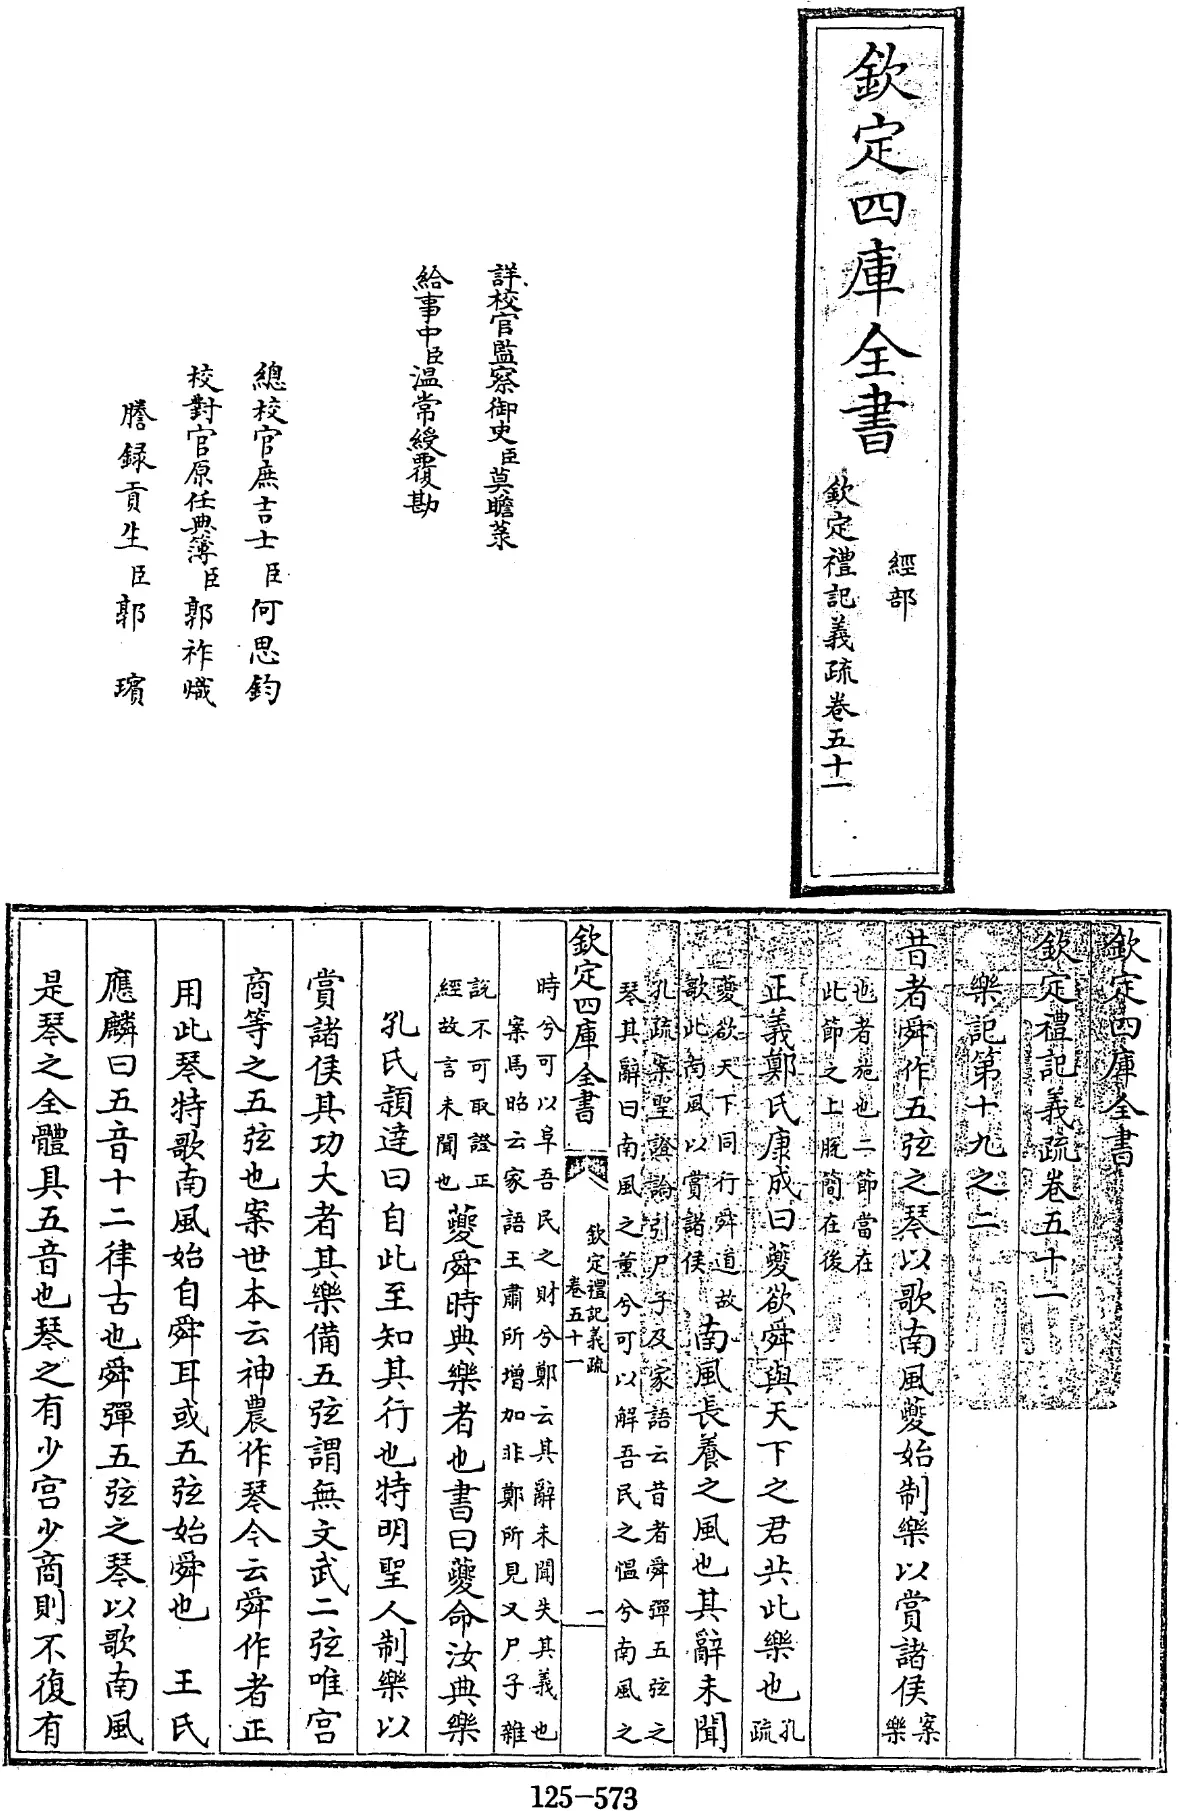 欽定四庫全書
經部
欽定禮記義疏卷五十一
詳校官監察御史臣莫瞻菉
給事中臣温常綬覆勘
總校官庶吉士臣何思鈞
校對官原任典簿臣郭祚熾
謄録貢生臣郭瑸
欽定四庫全書
欽定禮記義疏卷五十一
樂記第十九之二
昔者舜作五弦之琴以歌南風夔始制樂以賞諸侯案樂
也者施也二節當在
此節之上脫簡在後
正義鄭氏康成曰夔欲舜與天下之君共此樂也孔疏
夔欲天下同行舜道故
歌此南風以賞諸侯南風長養之風也其辭未聞
孔疏案聖證論引尸子及家語云昔者舜彈五弦之
琴其辭曰南風之薰兮可以解吾民之愠兮南風之
欽定四庫全書
欽定禮記義疏
卷五十一
一
時兮可以阜吾民之財兮鄭云其辭未聞失其義也
案馬昭云家語王肅所增加非鄭所見又尸子雜
說不可取證正
經故言未聞也夔舜時典樂者也書曰夔命汝典樂
孔氏穎達曰自此至知其行也特明聖人制樂以
賞諸侯其功大者其樂備五弦謂無文武二弦唯宫
商等之五弦也案世本云神農作琴今云舜作者正
用此琴特歌南風始自舜耳或五弦始舜也 王氏
應麟曰五音十二律古也舜彈五弦之琴以歌南風
是琴之全體具五音也琴之有少宫少商則不復有
125-573